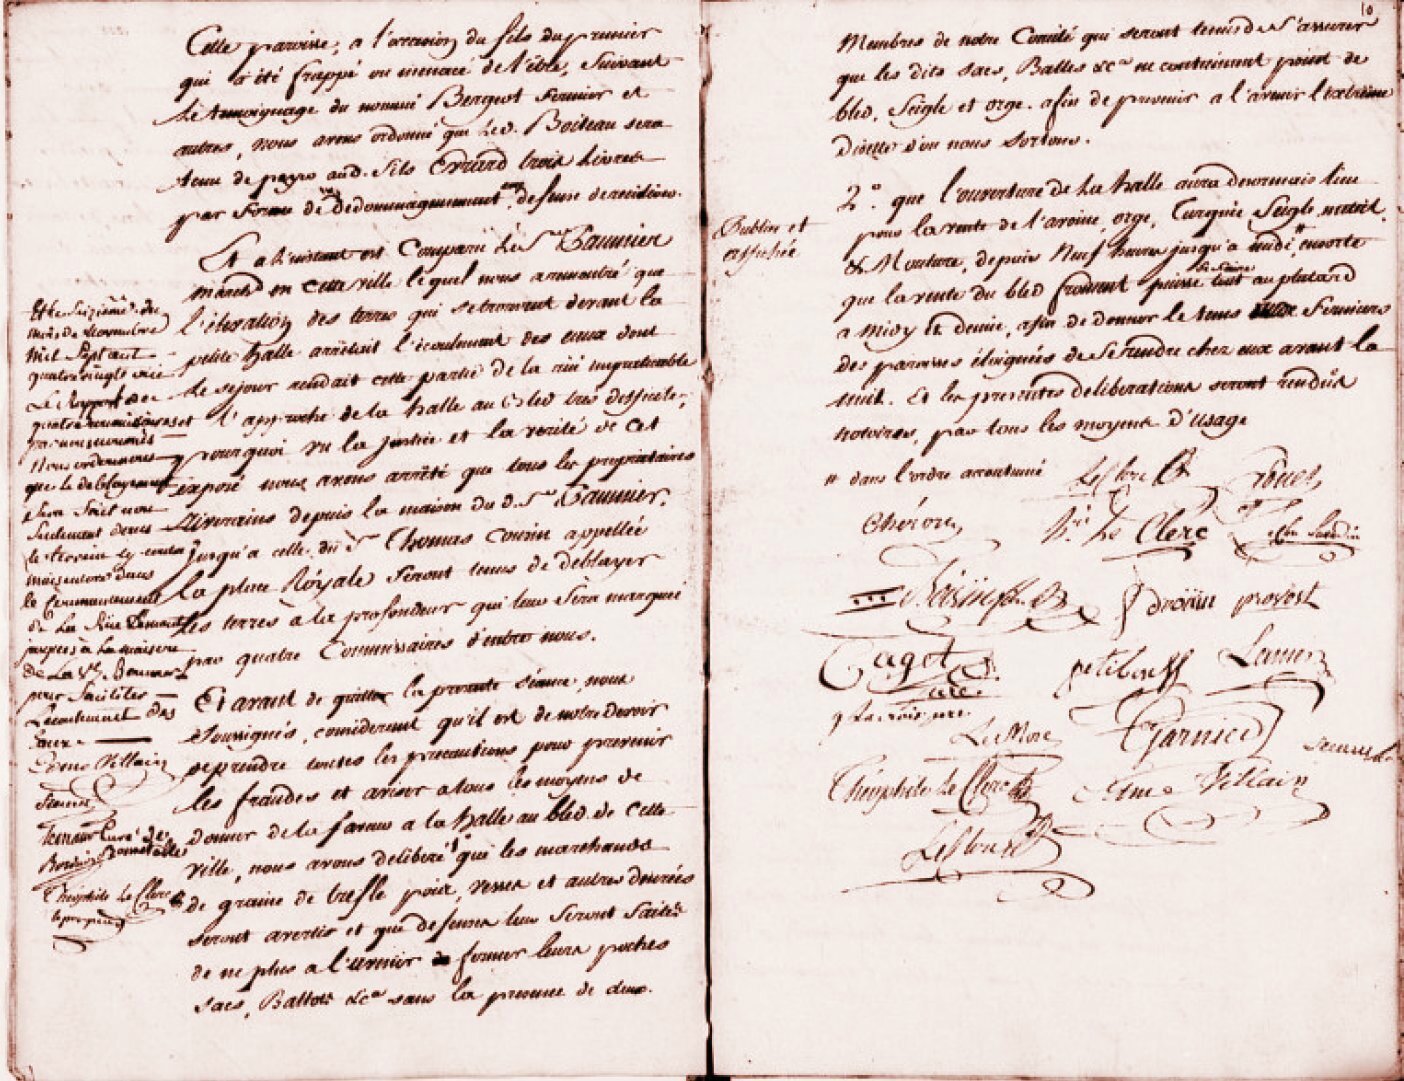 Cette paroisse, a l'occasion du fils du premier
qui a été frappé ou menacé de l'être, Suivant
le temoignage du nommé Bergeot Fermier et
autres, nous avons ordonné que led. Boiteau sera
tenu de payer aud. fils Evrard trois Livres
par forme de dedommagement, defense de recidiver.
Et a l'instant est Comparu le Sr. Saunier
march'd en cette ville lequel nous a remontré que
l'élevation des terres qui se trouvent devant la
petite halle arrêtait l'écoulement des eaux dont
le sejour rendait cette partie de la rüe impraticable
et l'approche de la halle au bled tres difficile;
pourquoi vu la justice et la verité de cet
exposé nous avons arrêté que tous les propriétaires
Riverains depuis la maison du d. Sr. Saunier,
jusqu'a celle du Sr. Thomas cousin appellée
la place Royale seront tenus de deblayer
les terres a la profondeur qui leur sera marquée
par quatre Commissaires d'entre nous.
Et avant de quitter la presente séance, nous
soussignés, considerant qu'il est de notre Devoir
de prendre toutes les precautions pour prevenir
les fraudes et aviser a tous les moyens de
donner de la faveur a la halle au bled de cette
ville, nous avons deliberé 1° que les marchands
de graine de tresfle, pois, vesses et autres denrées
seront avertis et que defenses leur seront faites
de ne plus a l'avenir fermer leurs poches
sacs, Ballots &ca. sans la presence de deux
Et le Seizieme du
mois de Novembre
mil Sept cent
quatre vingts
Le Rapport des
quatre commissaires
par nous nommés
Nous ordonnons
que le deblayement
sera fait non
seulement dans
le terrain cy contre
mais encore dans
le Commencement
de la Rüe
jusques à la maison
de La Ve.
pour faciliter
L'ecoulement des
Eaux
Come Villain
Théophile Le Clerc
10
Membres de notre Comité qui seront tenus de s'assurer
que les dits sacs, Balles &ca. ne contiennent point de
bled, seigle et orge, afin de prevenir a l'avenir l'extrême
Disette d'ou nous sortons.
2°. que l'ouverture de la halle aura desormais lieu
pour la vente de l'avoine, orge, Turquie Seigle, méteil,
& Mouture, depuis Neuf heures jusqu'a midi # ensorte
que la vente du bled froment puisse se faire au plutard
a midy et demie, afin de donner le tems Fermiers
des paroisses éloignées de se rendre chez eux avant la
nuit. Et les presentes deliberations seront rendües
notoires, par tous les moyens d'Usage
Publiée et
affichée
# dans l'ordre accoutumé
Chéron
Le Clerc
provost
Cagot
petitbeuf
Lemor
Garnier
Théophile Le Clerc
Come Villain